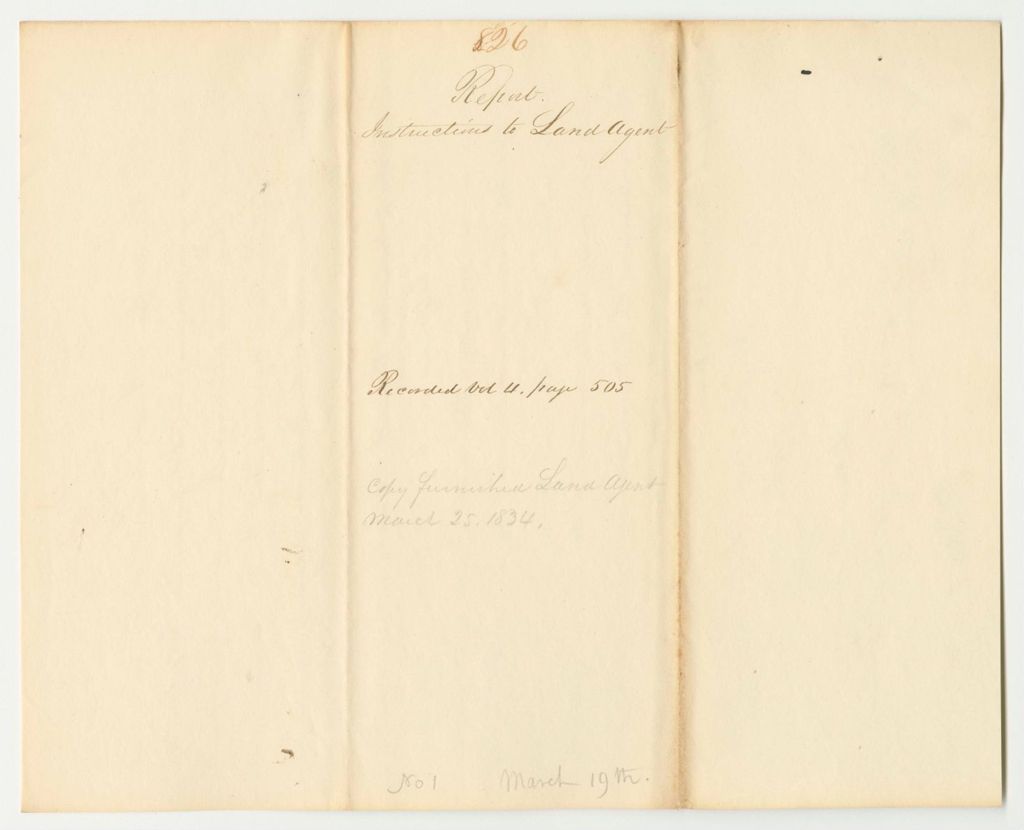 826
Report.
Instructions to Land Agent
Recorded Vol 4. page 505
Copy furnished Land Agent
March 25. 1834.
No 1 March 19th.